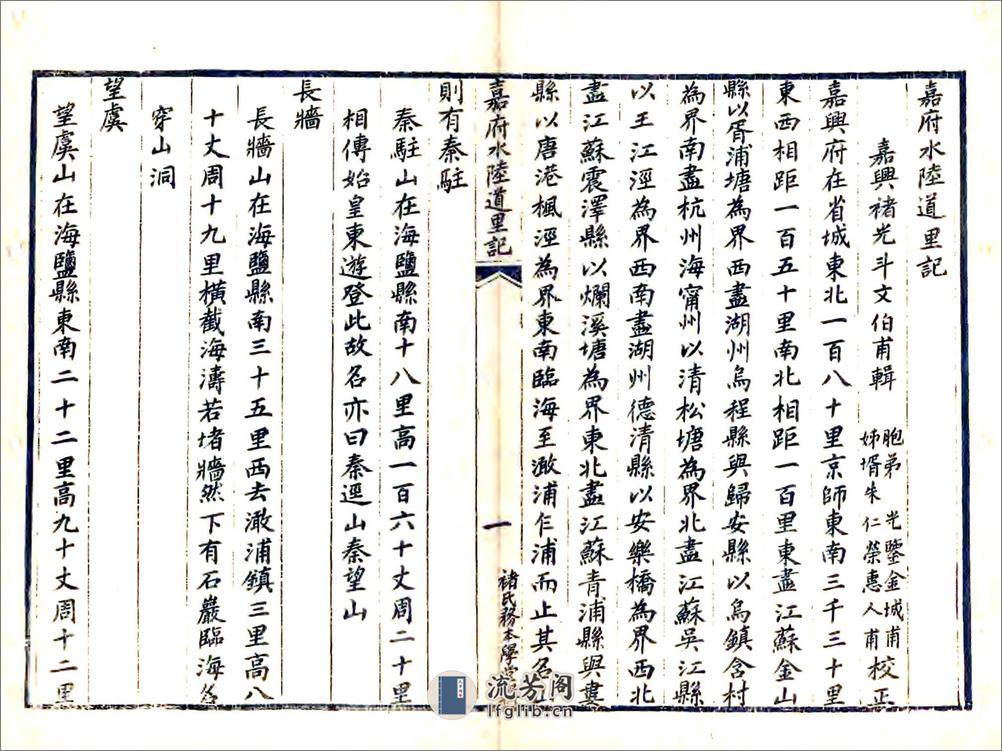 嘉府水陸道里記
嘉興褚光斗文伯甫輯
胞弟 光鑒金城甫
姊壻朱仁榮惠人甫
校正
嘉興府在省城東北一百八十里京師東南三千三十里
東西相距一百五十里南北相距一百里東盡江蘇金山
縣以胥浦塘為界西盡湖州烏程縣與歸安縣以烏鎮含村
為界南盡杭州海甯州以清松塘為界北盡江蘇吳江縣
以王江涇為界西南盡湖州德清縣以安樂橋為界西北
盡江蘇震澤縣以爛溪塘為界東北盡江蘇青浦縣與婁
縣以唐港楓涇為界東南臨海至澉浦乍浦而止其名
嘉府水陸道里記
一
褚氏務本學堂
則有秦駐
秦駐山在海鹽縣南十八里高一百六十丈周二十里
相傳始皇東遊登此故名亦曰秦逕山秦望山
長牆
長牆山在海鹽縣南三十五里西去澉浦鎮三里高八
十丈周十九里橫截海濤若堵牆然下有石巖臨海名
穿山洞
望虞
望虞山在海鹽縣東南二十二里高九十丈周十二里
流芳阁
lfglib.cn